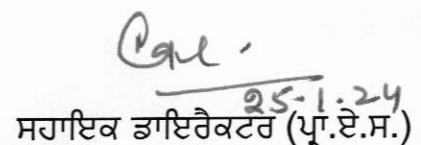 25-1-24
ਸਹਾਇਕ ਡਾਇਰੈਕਟਰ (ਪ੍ਰਾ.ਏ.ਸ.)